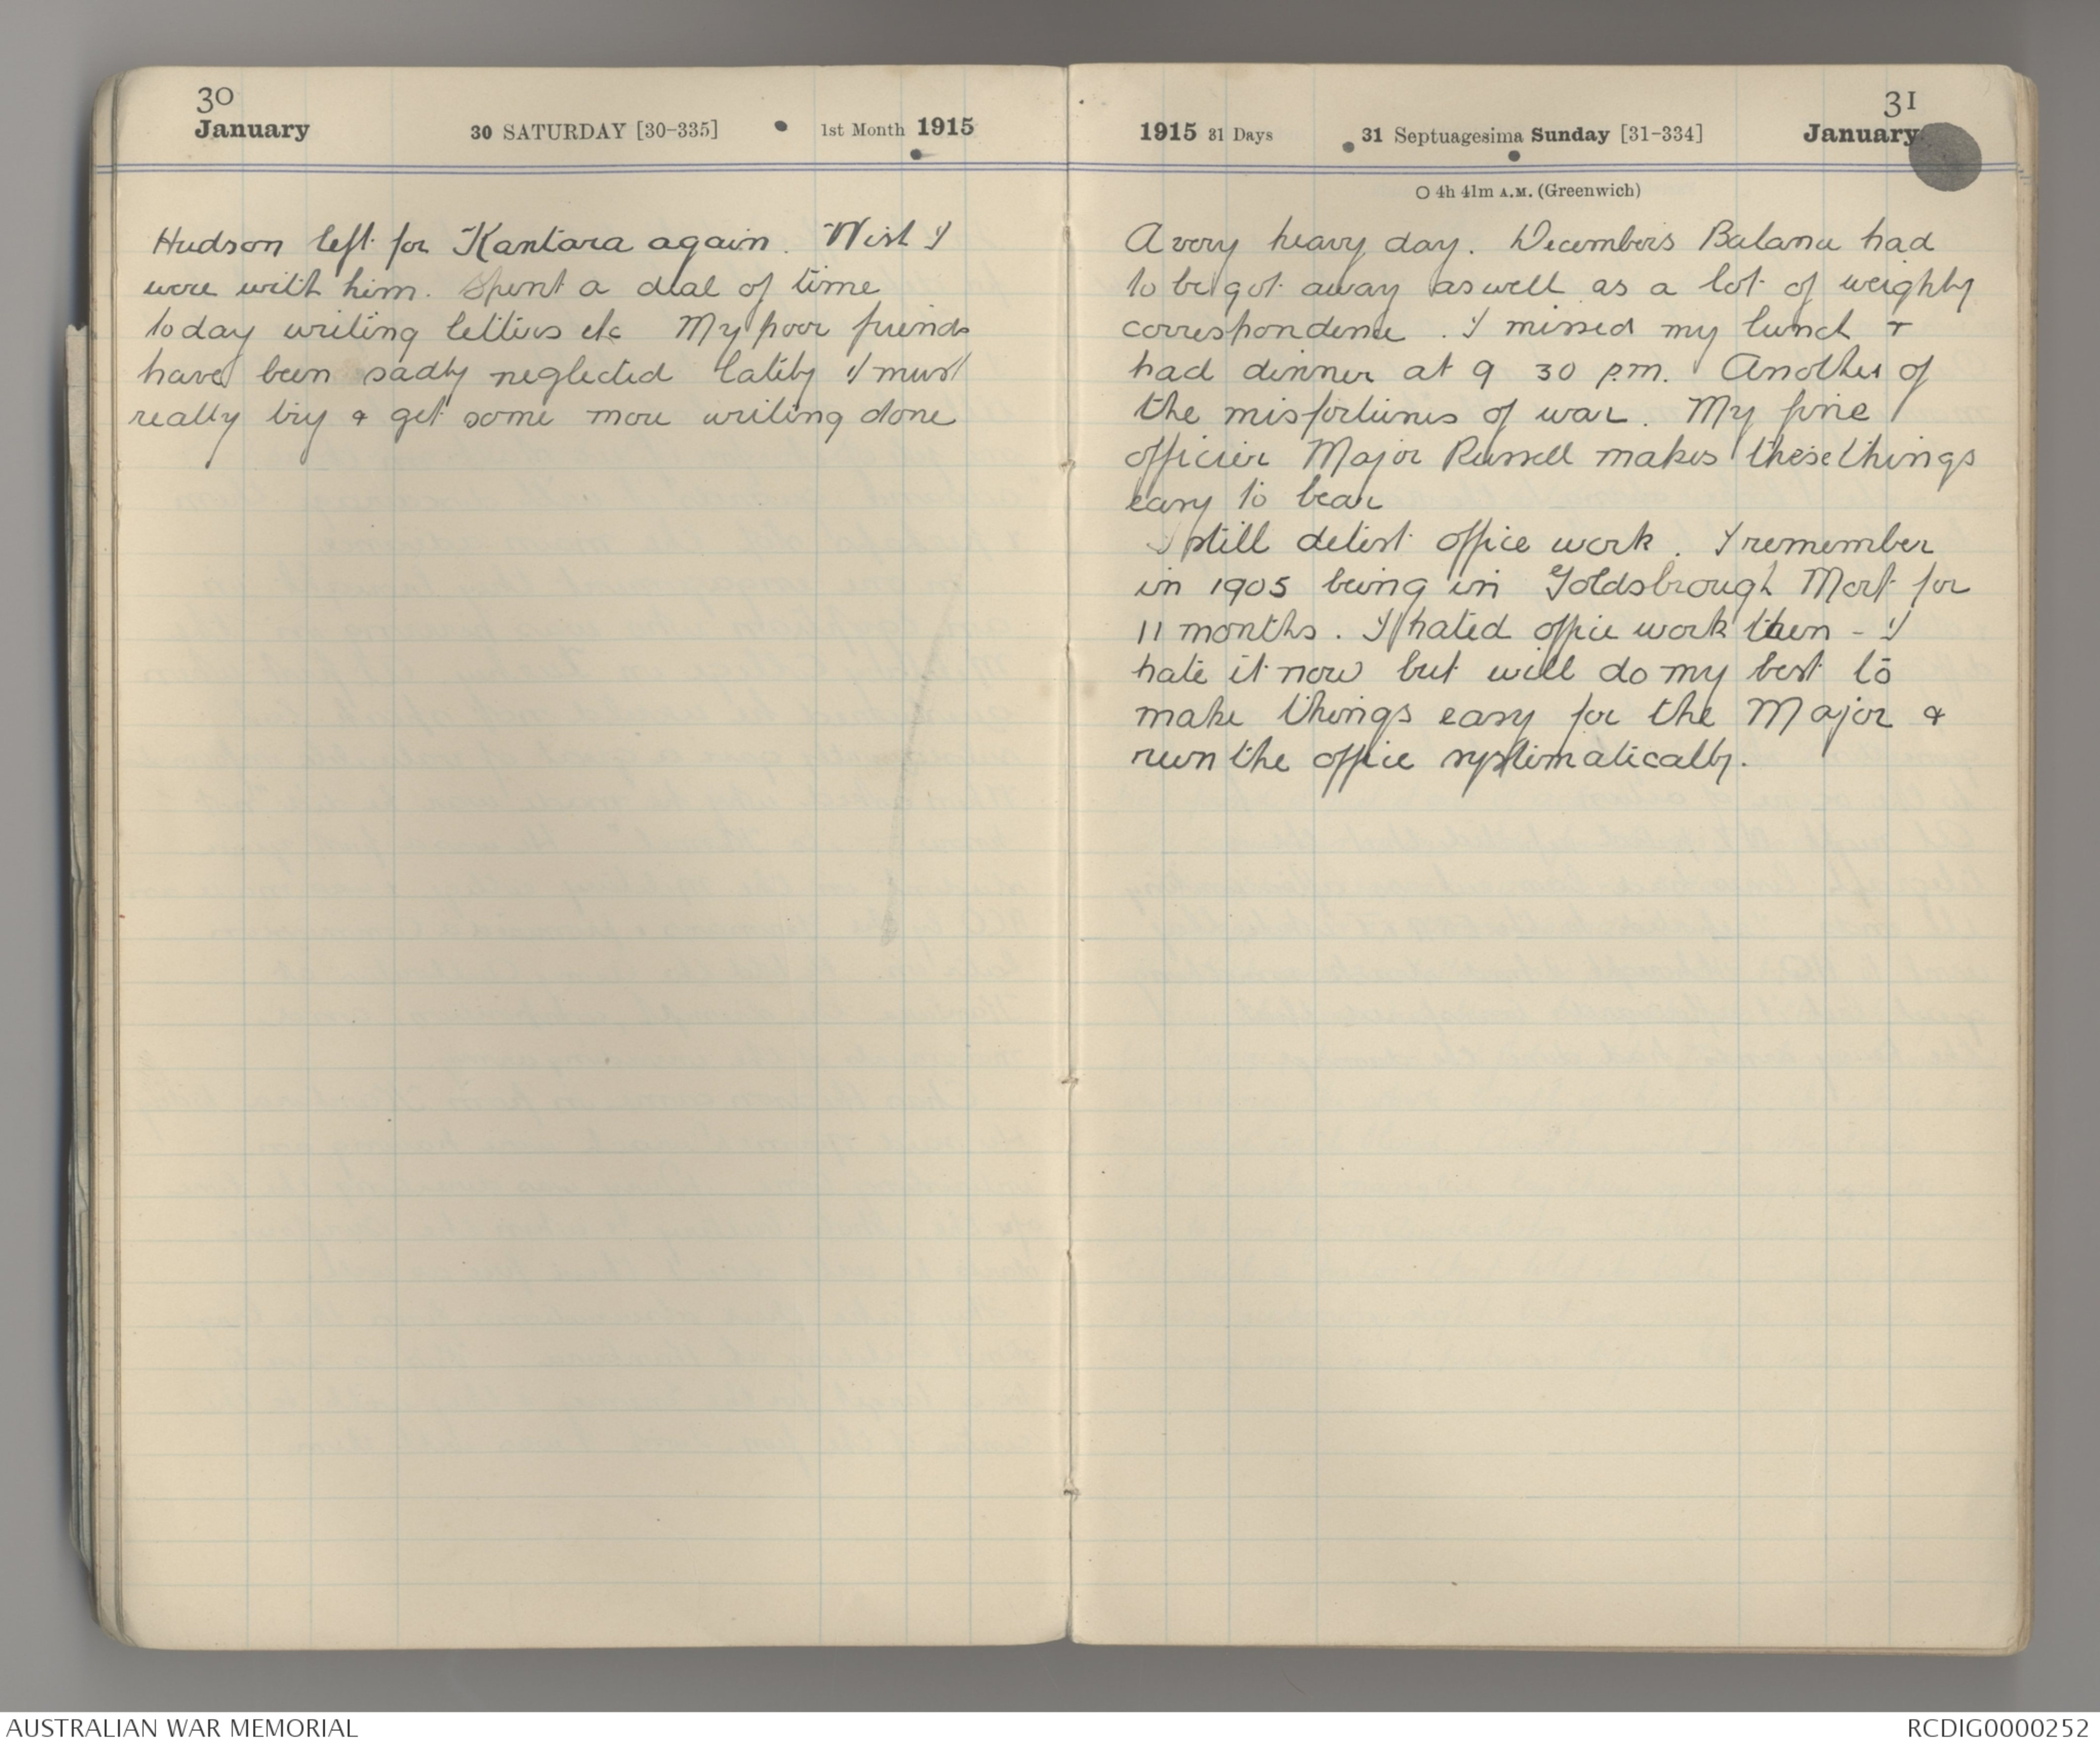 30
January 30 SATURDAY [30-335] 1st Month 1915
Hudson left for Kantara again. Wish I
were with him. Spent a deal of time
today writing letters etc My poor friends
have been sadly neglected lately I must
really try & get some more writing done
31
1915 31 Days 31 Septuagesima Sunday [31-334] January
O 4h 41m A.M. (Greenwich)
A very heavy day. Decembers Balance had
to be got away as well as a lot of weighty
correspondence. I missed my lunch &
had dinner at 9 30 p.m. Another of
the misfortunes of war. My fine
officier Major Russell makes these things
easy to bear
I still detest office work. I remember
in 1905 being in Goldsbrough Mort for
11 months. I hated office work then - I
hate it now but will do my best to
make things easy for the Major &
run the office systematically.
AUSTRALIAN WAR MEMORIAL
RCDIG0000252